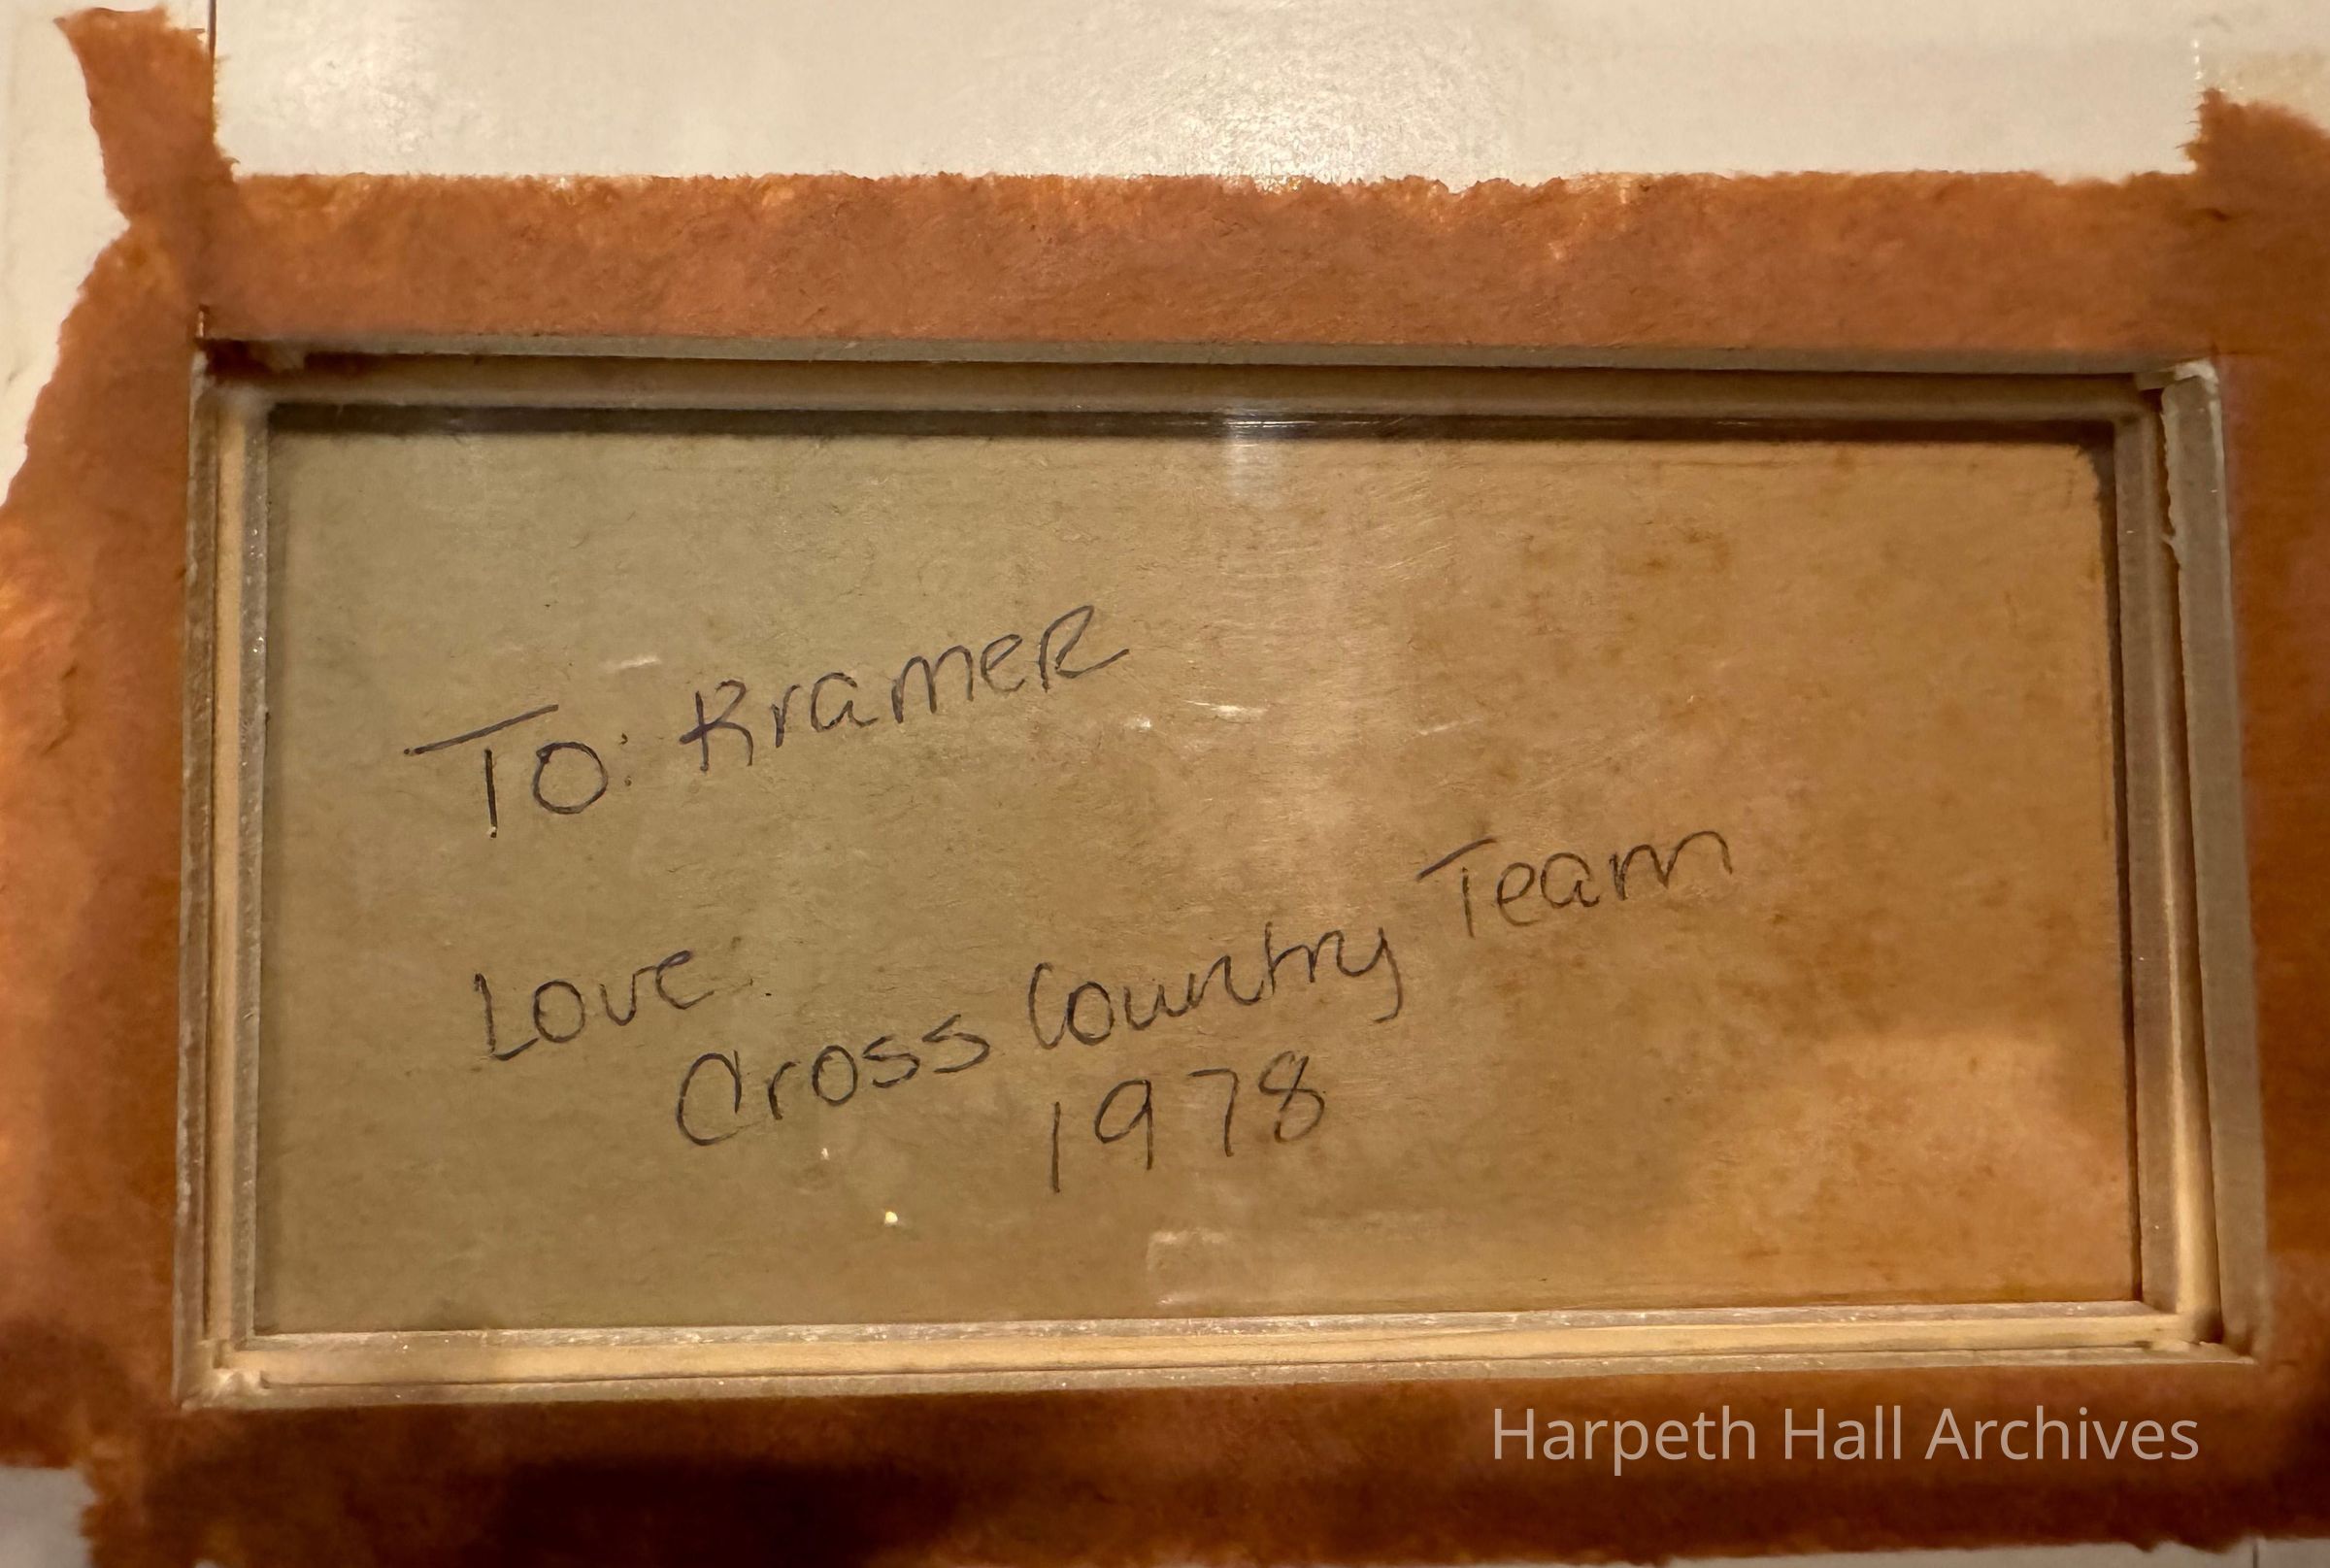 To: Kramer
Love.
Cross Country Team
1978
Harpeth Hall Archives